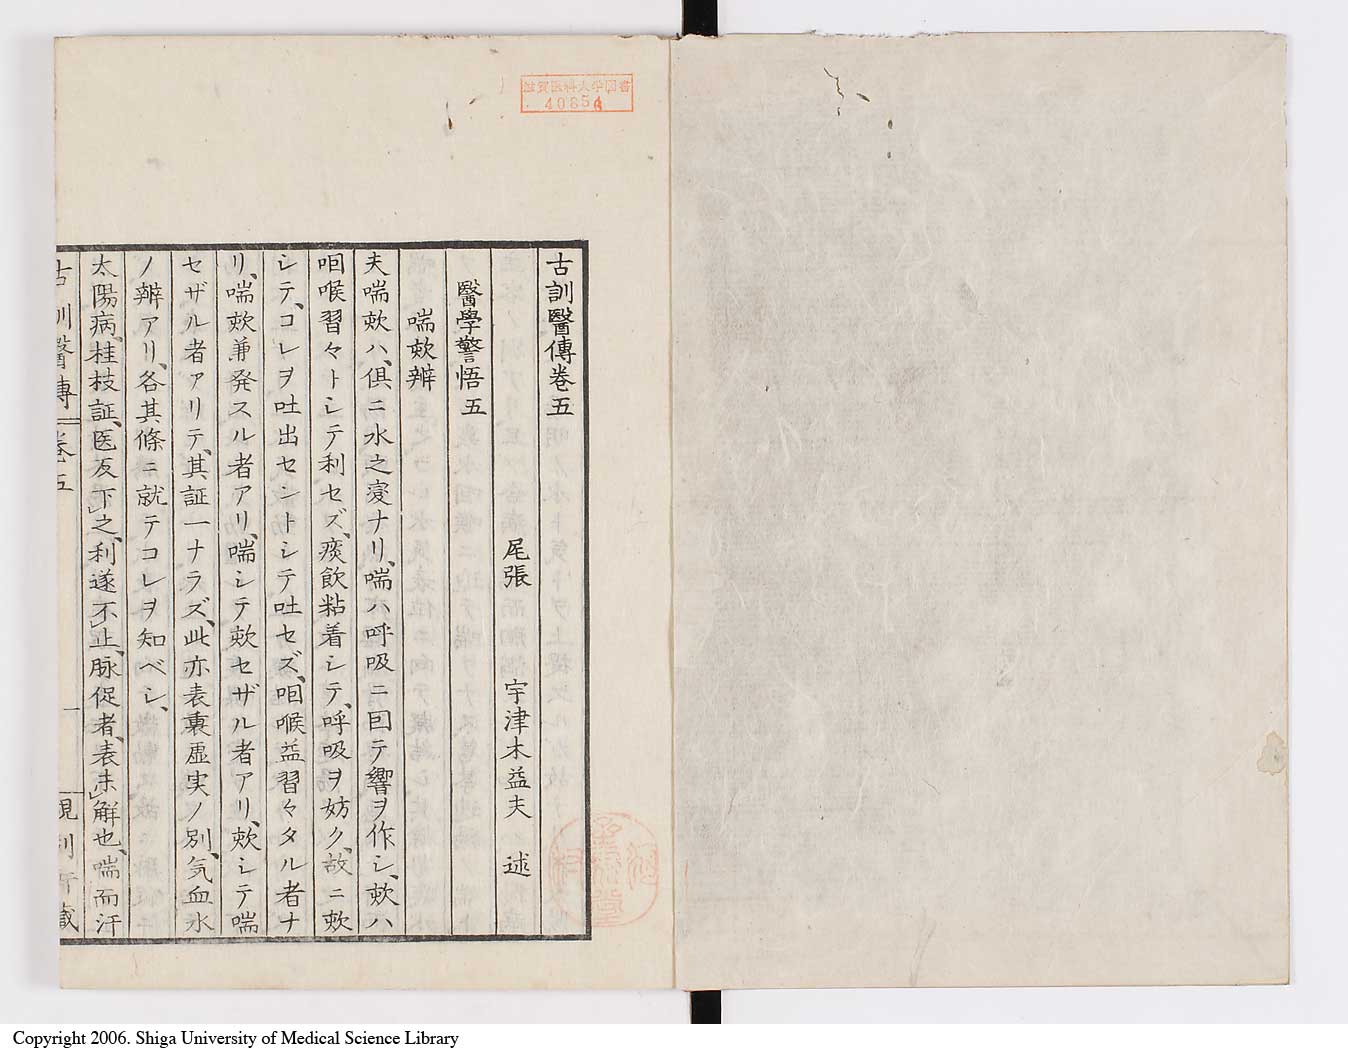 古訓醫傳卷五
尾張　宇津木益夫　述
醫學警悟五
喘欬辨
夫喘欬ハ、倶ニ水之変ナリ、喘ハ呼吸ニ囙テ響ヲ作シ、欬ハ
咽喉習々トシテ利セズ、痰飲粘着シテ、呼吸ヲ妨ク、故ニ欬
シテ、コレヲ吐出セントシテ吐セズ、咽喉益習々タル者ナ
リ、喘欬兼発スル者アリ、喘シテ欬セザル者アリ、欬シテ喘
セザル者アリテ、其証一ナラズ、此亦表裏虚実ノ別、気血水
ノ辨アリ、各其條ニ就テコレヲ知ベシ、
太陽病、桂枝証、医反下」之、利遂不」止、脉促者、表未」解也、喘而汗
古訓醫傳 卷五 一
滋賀医科大学図書
40654
Copyright 2006. Shiga University of Medical Science Library